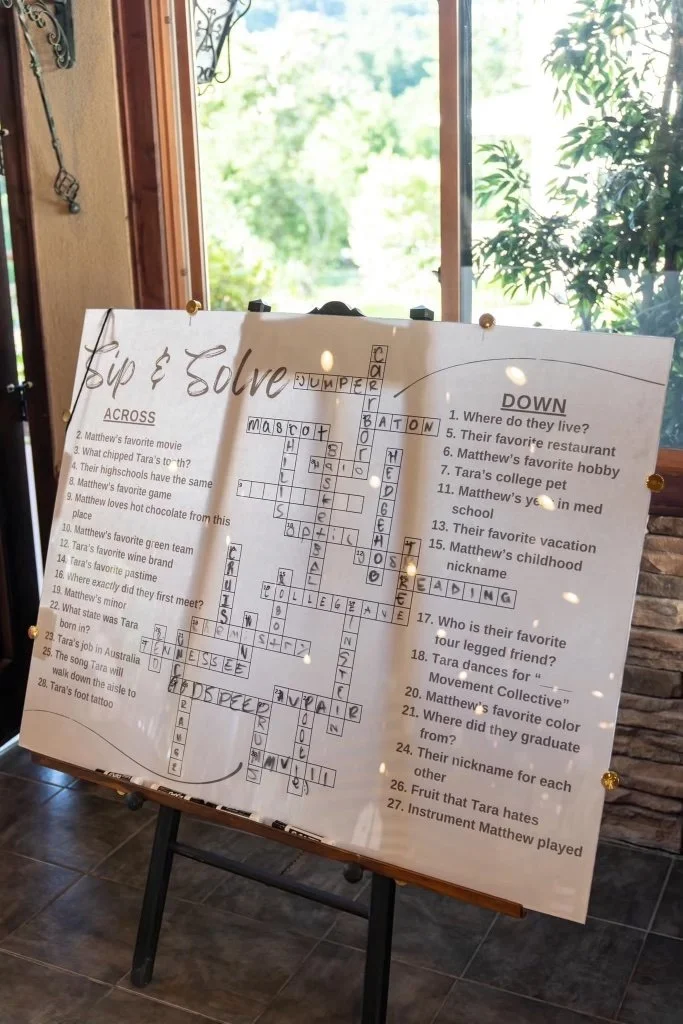 Sip & Solve
ACROSS
2. Matthew's favorite movie
3. What chipped Tara's tooth?
4. Their highschools have the same
8. Matthew's favorite game
9. Matthew loves hot chocolate from this
place
10. Matthew's favorite green team
12. Tara's favorite wine brand
14. Tara's favorite pastime
16. Where exactly did they first meet?
19. Matthew's minor
22. What state was Tara
born in?
23. Tara's job in Australia
25. The song Tara will
walk down the aisle to
28. Tara's foot tattoo
JUMPER
CARRBORO
BATON
mascot
HEDGEHOG
BASKETBALL
TREE
READING
CRUISIN
COLLEGE AVE
EINSTEIN
TENNESSEE
GODSPEED
ORANGE
DRUMS
DOWN
1. Where do they live?
5. Their favorite restaurant
6. Matthew's favorite hobby
7. Tara's college pet
11. Matthew's year in med
school
13. Their favorite vacation
15. Matthew's childhood
nickname
17. Who is their favorite
four legged friend?
18. Tara dances for "___
Movement Collective"
20. Matthew's favorite color
21. Where did they graduate
from?
24. Their nickname for each
other
26. Fruit that Tara hates
27. Instrument Matthew played